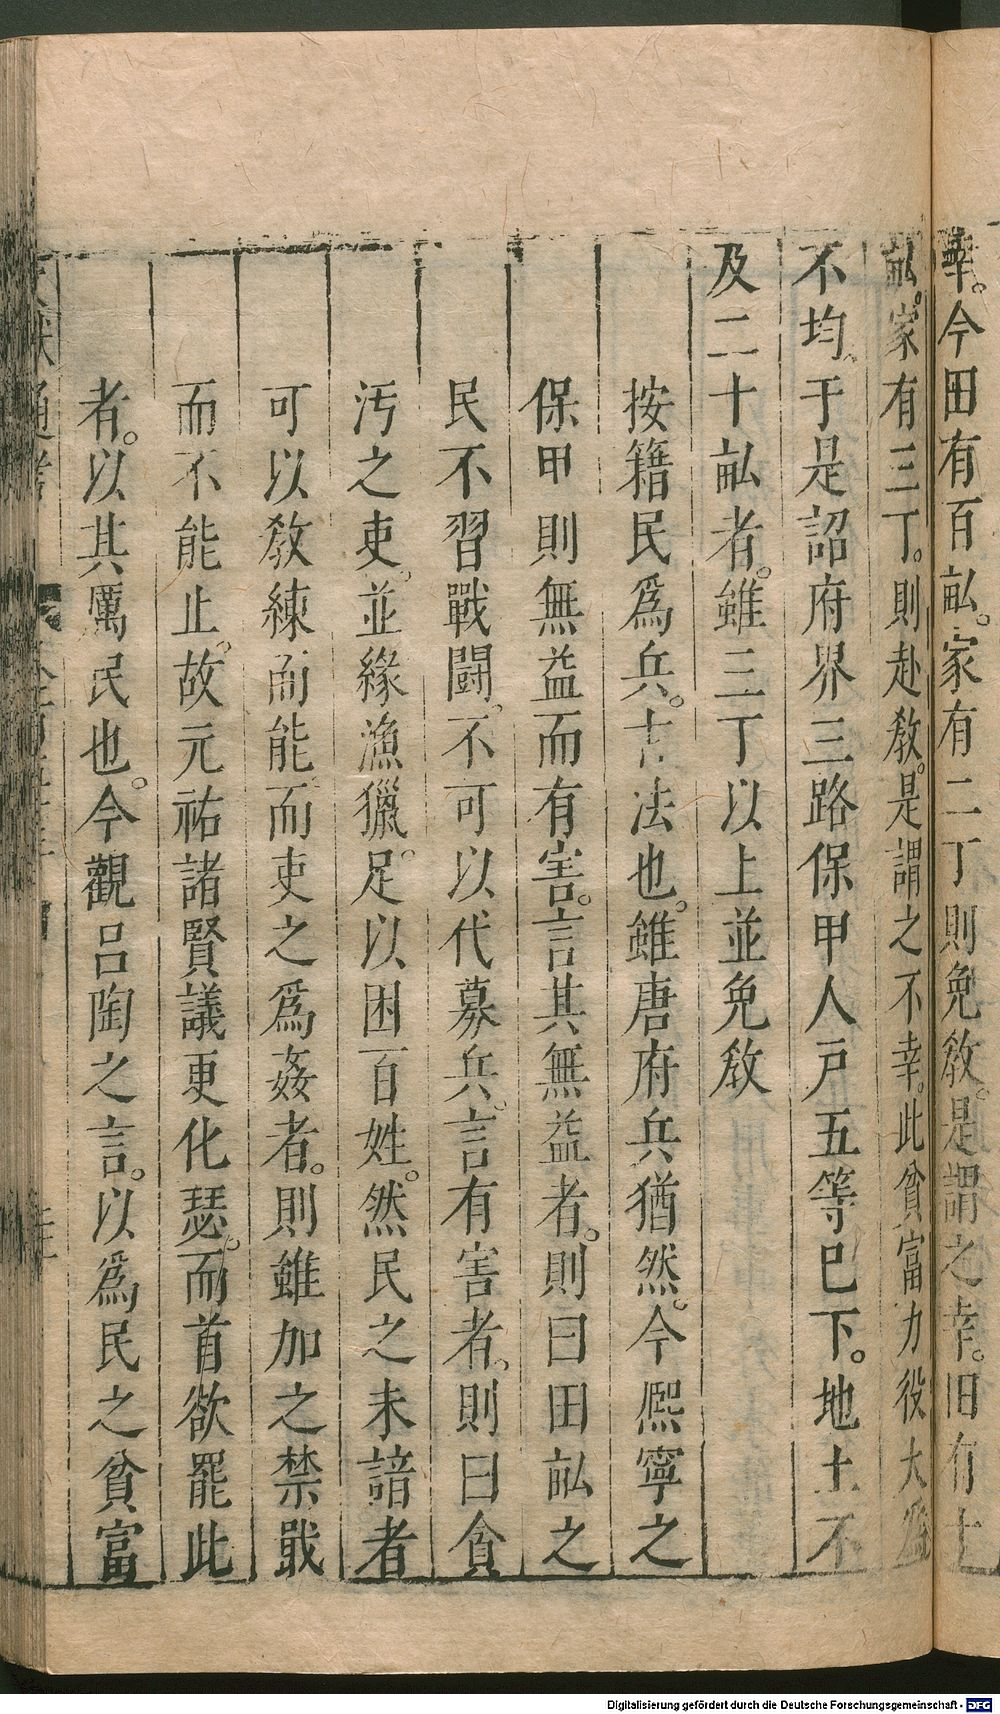 幸。今田有百畝。家有二丁則免敎。是謂之幸。旧有土
畝。家有三丁。則赴敎。是謂之不幸。此貧富力役大爲
不均。于是詔府界三路保甲人戸五等已下。地土不
及二十畝者。雖三丁以上並免敎
按籍民爲兵。古法也。雖唐府兵猶然。今熈寧之
保甲則無益而有害。言其無益者。則曰田畝之
民不習戰闘。不可以代募兵。言有害者。則曰貪
汚之吏。並緣漁獵。足以困百姓。然民之未諳者
可以敎練而能。而吏之爲姦者。則雖加之禁戢
而不能止。故元祐諸賢議更化瑟。而首欲罷此
者。以其厲民也。今觀呂陶之言。以爲民之貧富
文獻通考
Digitalisierung gefördert durch die Deutsche Forschungsgemeinschaft - DFG